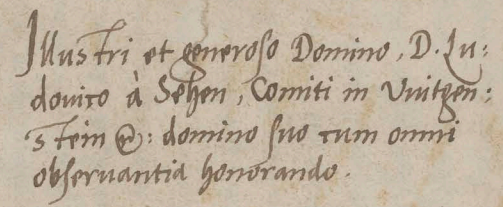 Illustri et generoso Domino, D. Lu:
douico à Sehen, Comiti in Vuitgen:
stein &: domino suo cum omni
obseruantia honorando.